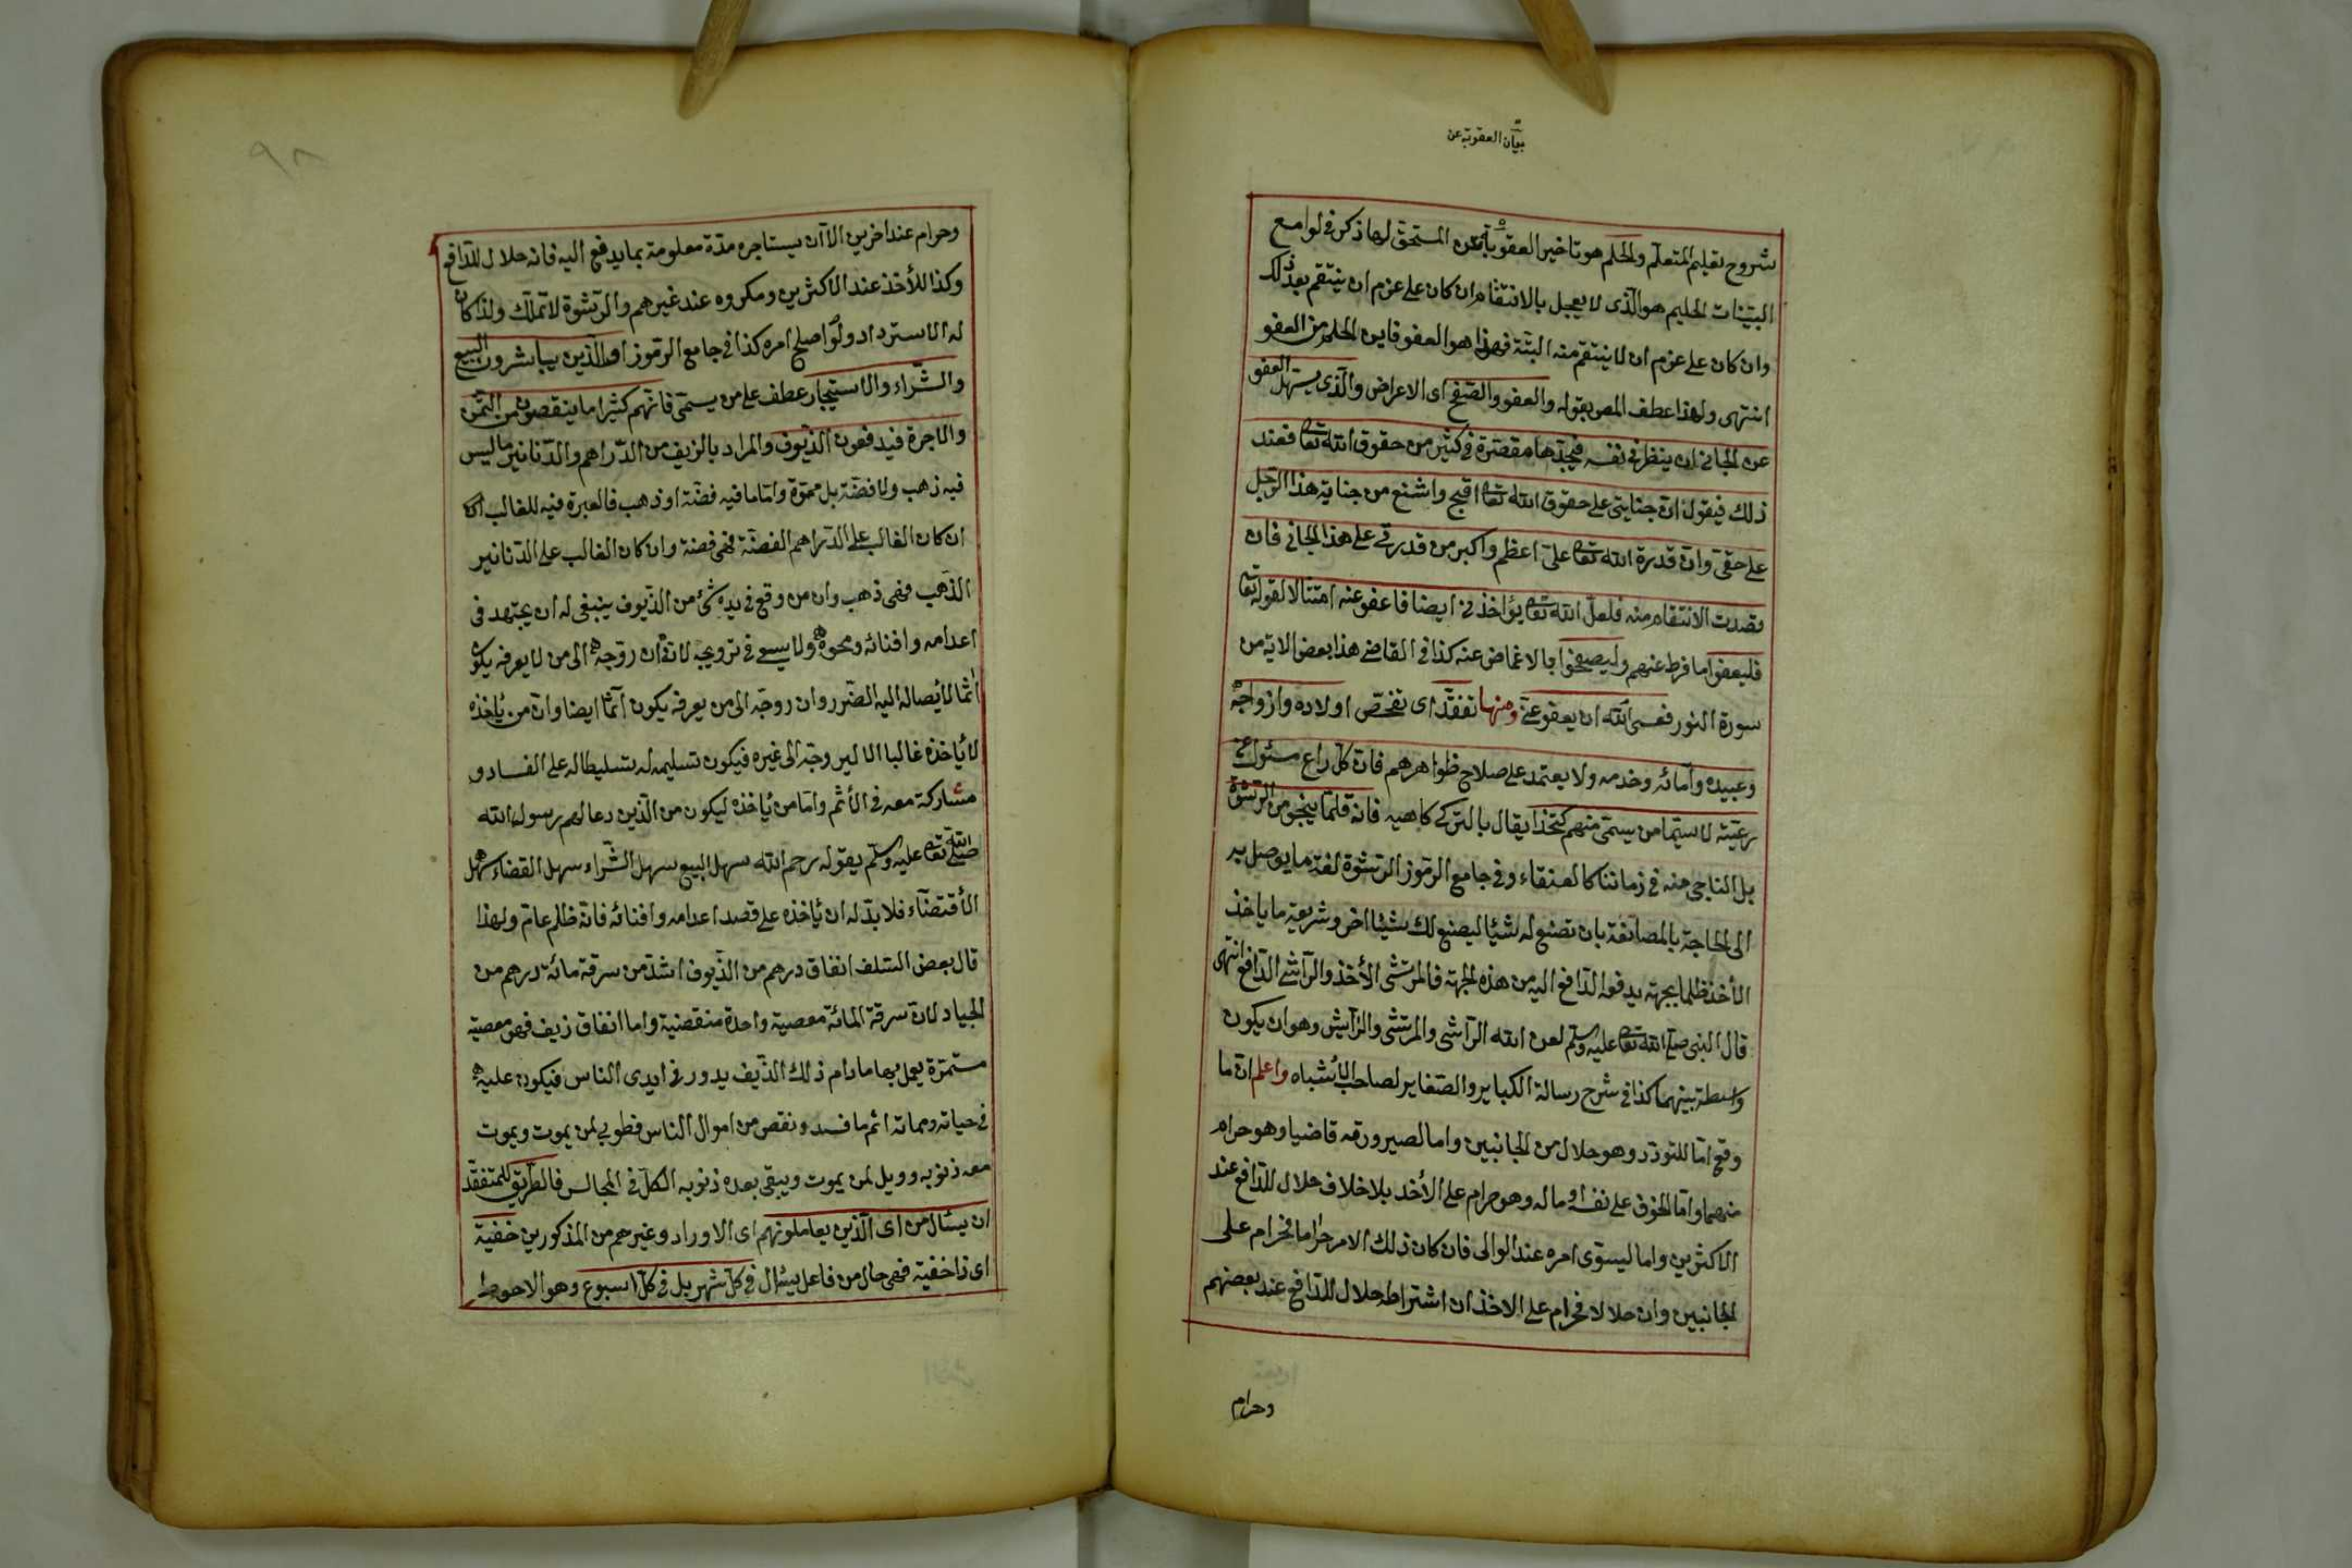 بيان العقوبة عن
شروح تعليم المتعلم والحلم هو تاخير العقوبة عن المستحق لها ذكره في لوامع
البينات الحليم هو الذى لا يعجل بالانتقام ان كان على عزم ان ينتقم بعد ذلك
وان كان على عزم ان لا ينتقم منه البتة فهذا هو العفو فاين الحلم من العفو
انتهى ولهذا عطف المص بقوله والعفو والصفح اى الاعراض والذى يسهل العفو
عن الجانى ان ينظر فى نفسه فيجدها مقصرة فى كثير من حقوق الله تعا فعند
ذلك فيقول ان جنايتى على حقوق الله تعا اقبح واشنع من جناية هذا الرجل
على حقى وان قدرة الله تعا على اعظم واكبر من قدرتى على هذا الجانى فان
قصدت الانتقام منه فلعل الله تعا يؤاخذنى ايضا فاعفو عنه امتثالا لقوله تعا
فليعفوا ما فرط عنهم وليصفحوا بالاغماض عنه كذا فى القاضى هذا بعض الاية من
سورة النور فعسى الله ان يعفو عنى ومنها تفقد اى تفحص اولاده وازواجه
وعبيده وآمائه وخدمه ولا يعتمد على صلاح ظواهرهم فان كل راع مسئول عن
رعيته لا سيما من يسمى منهم كتخدا يقال بالتركى كاهيه فانه قلما ينجو من الرشوة
بل الناجى منه فى زماننا كالعنقاء وفى جامع الرموز الرشوة لغة ما يوصل به
الى الحاجة بالمصانعة بان تصنع له شيئا ليصنع لك شيئا اخر وشريعة ما ياخذه
الأخذ ظلما بجهة يدفعه الدافع اليه من هذه الجهة فالمرتشى الأخذ والراشى الدافع انتهى
قال النبى صلى الله تعا عليه وسلم لعن الله الراشى والمرتشى والرايش وهو ان يكون
واسطة بينهما كذا فى شرح رسالة الكباير والصغاير لصاحب الأشباه واعلم ان ما
وقع اما للتودد وهو حلال من الجانبين واما لصيرورته قاضيا وهو حرام
منهما واما لخوف على نفسه او ماله وهو حرام على الأخذ بلا خلاف حلال للدافع عند
الاكثرين واما ليسوى امره عند الوالى فان كان ذلك الامر حراما فحرام على
الجانبين وان حلالا فحرام على الاخذ ان اشتراط حلال للدافع عند بعضهم
وحرام
٩٨
وحرام عند اخرين الا ان يستاجره مدة معلومة بما يدفع اليه فانه حلال للدافع
وكذا للأخذ عند الاكثرين ومكروه عند غيرهم والرشوة لا تملك ولذا كان
له الاسترداد ولو اصلح امره كذا فى جامع الرموز او الذين يباشرون البيع
والشراء والاستيجار عطف على من يسمى فانهم كثيرا ما ينقصون من الثمن
والاجرة فيدفعون الزيوف والمراد بالزيف من الدراهم والدنانير ما ليس
فيه ذهب ولا فضة بل مموة واما ما فيه فضة او ذهب فالعبرة فيه للغالب اى
ان كان الغالب على الدراهم الفضة فهى فضة وان كان الغالب على الدنانير
الذهب فهى ذهب وان من وقع فى يده شئ من الزيوف ينبغى له ان يجتهد فى
اعدامه وافنائه ومحوه ولا يسعى فى ترويجه لانه ان روجه الى من لا يعرفه يكون
اثما لأيصاله اليه الضرر وان روجه الى من يعرفه يكون آثما ايضا وان من يأخذه
لا يأخذه غالبا الا ليروجه الى غيره فيكون تسليمه له تسليطا له على الفساد و
مشاركة معه فى الأثم واما من يأخذه ليكون من الذين دعا لهم رسول الله
صلى الله تعا عليه وسلم بقوله رحم الله سهل البيع سهل الشراء سهل القضاء سهل
الأقتضاء فلا بد له ان يأخذه على قصد اعدامه وافنائه فانه ظلم عام ولهذا
قال بعض السلف انفاق درهم من الزيوف اشد من سرقة مائة درهم من
الجياد لان سرقة المائة معصية واحدة منقضية واما انفاق زيف فهو معصية
مستمرة يعمل بها ما دام ذلك الزيف يدور فى ايدى الناس فيكون عليه
فى حياته ومماته اثم ما فسد ونقص من اموال الناس فطوبى لمن يموت ويموت
معه ذنوبه وويل لمن يموت ويبقى بعده ذنوبه الكل فى المجالس فالطريق للمتفقد
ان يسأل من اى الذين يعاملونهم اى الاوراد وغيرهم من المذكورين خفية
اى ذا خفية فهى حال من فاعل يسأل فى كل شهر بل فى كل اسبوع وهو الاحوط